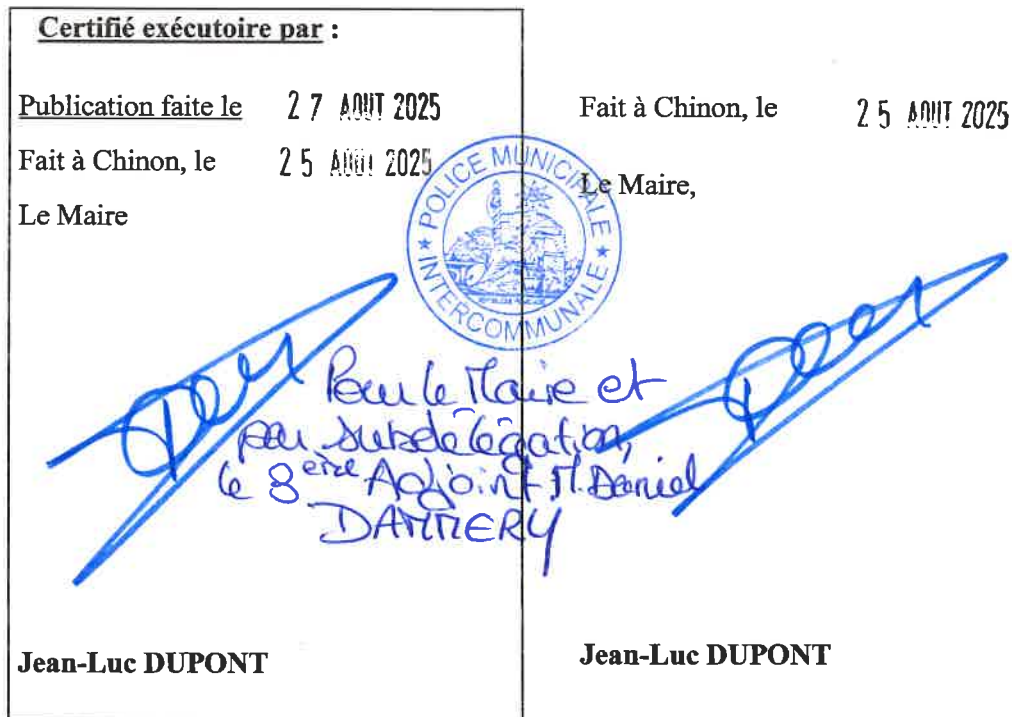 Certifié exécutoire par :
Publication faite le 27 AOUT 2025
Fait à Chinon, le 25 AOUT 2025
Le Maire
Fait à Chinon, le 25 AOUT 2025
Le Maire,
POLICE MUNICIPALE
★ INTERCOMMUNALE ★
Pour le Maire et
par subdélégation,
le 8eme Adjoint M. Daniel
DAMMERY
Jean-Luc DUPONT
Jean-Luc DUPONT